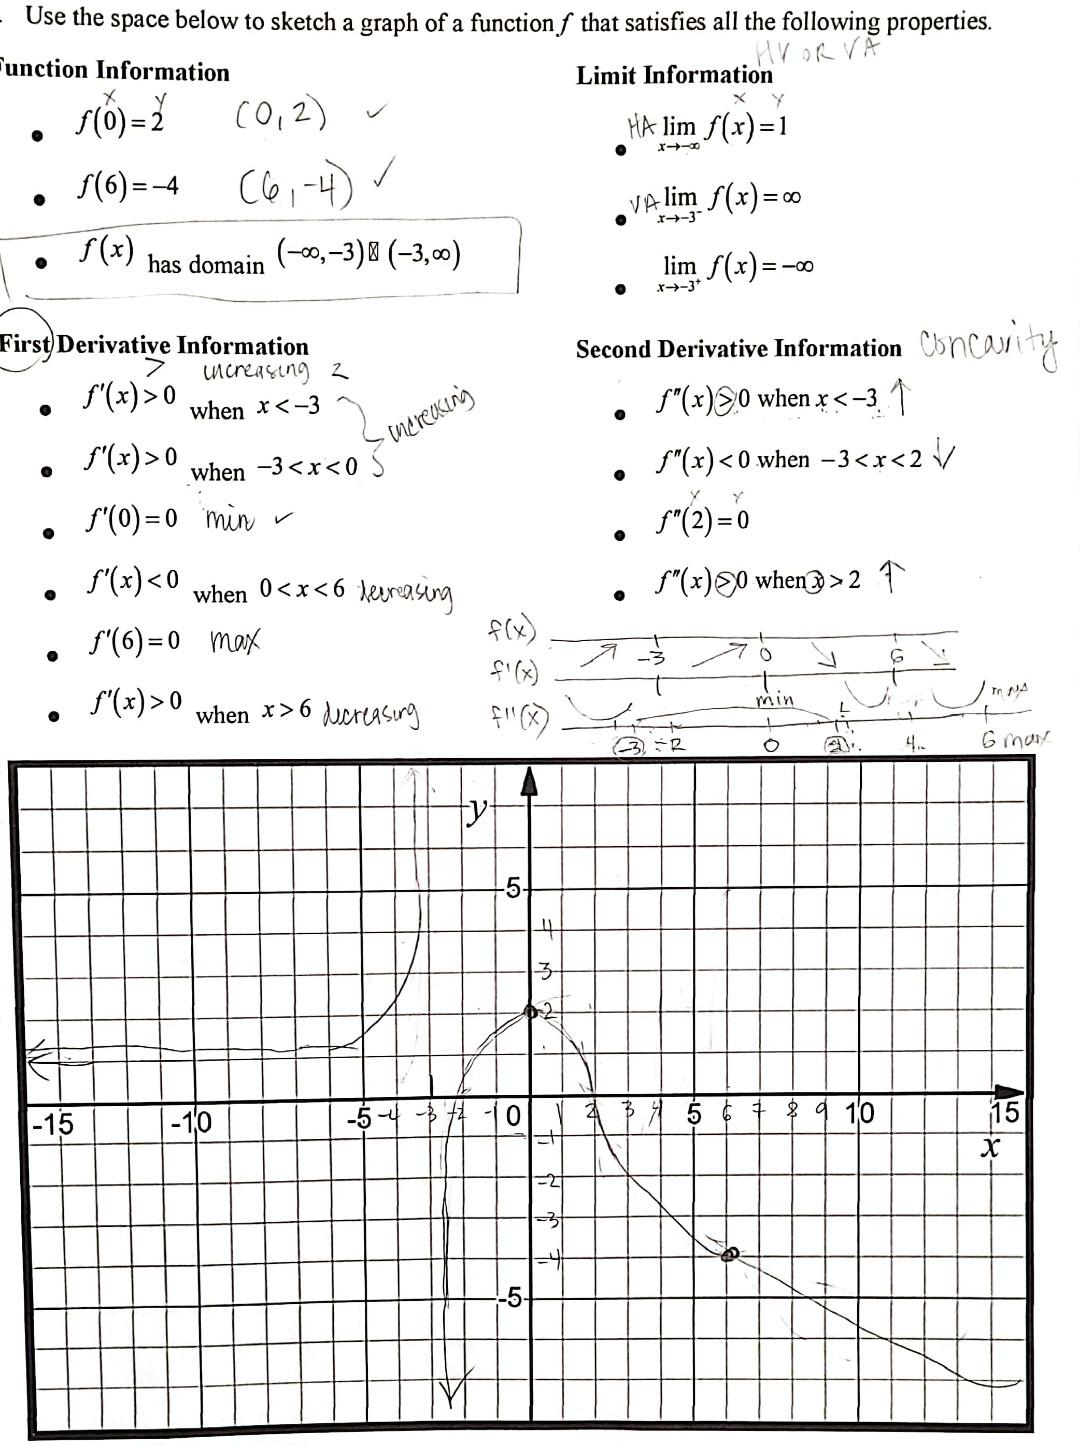 Use the space below to sketch a graph of a function f that satisfies all the following properties.
HV OR VA
Function Information
Limit Information
x y
f(0)=2 (0,2) ✓
x y
HA lim x→-∞ f(x)=1
f(6)=-4 (6,-4) ✓
VA lim x→-3⁻ f(x)=∞
f(x) has domain (-∞,-3) (-3,∞)
lim x→-3⁺ f(x)=-∞
First Derivative Information
Second Derivative Information concavity
> increasing 2
f'(x)>0 when x<-3
increasing
f''(x)>0 when x<-3 ↑
f'(x)>0 when -3<x<0
f''(x)<0 when -3<x<2 ↓
f'(0)=0 min ✓
x y
f''(2)=0
f'(x)<0 when 0<x<6 decreasing
f''(x)>0 when x>2 ↑
f'(6)=0 max
f(x)
-3 0 6
f'(x)
min max
f'(x)>0 when x>6 decreasing
f''(x)
-3 -2 0 2 4 6 max
y
5
4
3
2
-15 -10 -5 -4 -3 -2 -1 0 1 2 3 4 5 6 7 8 9 10 15
x
-1
-2
-3
-4
-5